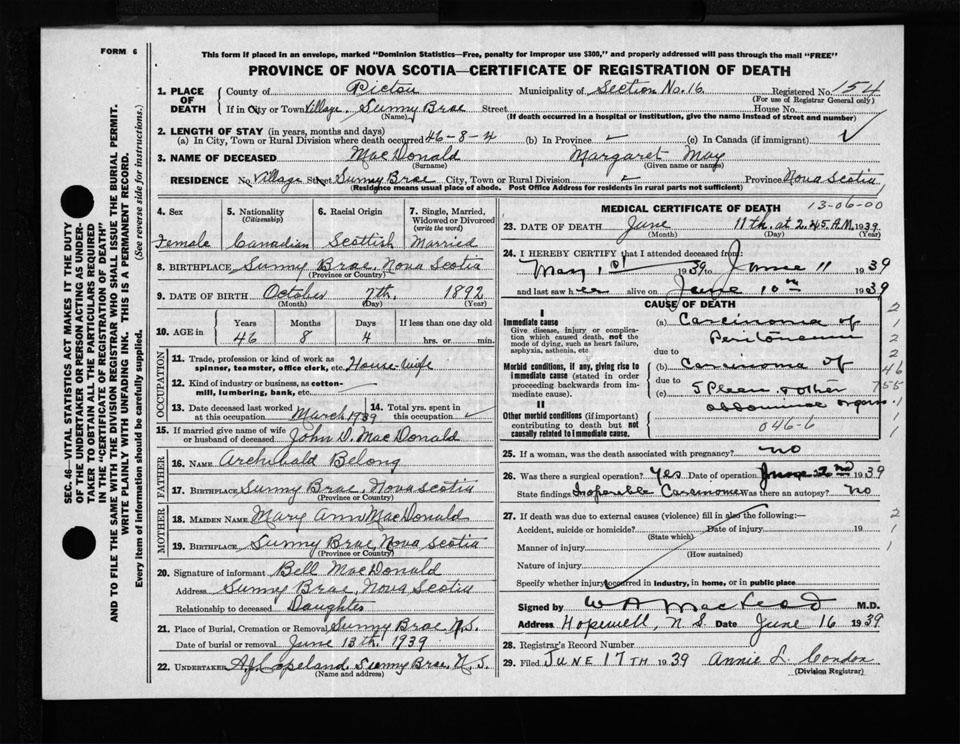 FORM 6
This form if placed in an envelope, marked "Dominion Statistics—Free, penalty for improper use $300," and properly addressed will pass through the mail "FREE"
PROVINCE OF NOVA SCOTIA—CERTIFICATE OF REGISTRATION OF DEATH
SEC. 46—VITAL STATISTICS ACT MAKES IT THE DUTY
OF THE UNDERTAKER OR PERSON ACTING AS UNDER-
TAKER TO OBTAIN ALL THE PARTICULARS REQUIRED
IN THE "CERTIFICATE OF REGISTRATION OF DEATH"
AND TO FILE THE SAME WITH THE DIVISION REGISTRAR WHO SHALL ISSUE THE BURIAL PERMIT.
WRITE PLAINLY WITH UNFADING INK. THIS IS A PERMANENT RECORD.
Every item of information should be carefully supplied. (See reverse side for instructions.)
1. PLACE OF DEATH County of Pictou Municipality of Section No. 16. Registered No. 154
(For use of Registrar General only)
If in City or Town Village, Sunny Brae Street House No.
(Name) (If death occurred in a hospital or institution, give the name instead of street and number)
2. LENGTH OF STAY (in years, months and days)
(a) In City, Town or Rural Division where death occurred 46-8-4 (b) In Province ✓ (c) In Canada (if immigrant) ✓
3. NAME OF DECEASED MacDonald Margaret May
(Surname) (Given name or names)
RESIDENCE No. Village Street Sunny Brae City, Town or Rural Division ✓ Province Nova Scotia
(Residence means usual place of abode. Post Office Address for residents in rural parts not sufficient)
4. Sex 5. Nationality (Citizenship) 6. Racial Origin 7. Single, Married, Widowed or Divorced (write the word)
Female Canadian Scottish Married
8. BIRTHPLACE Sunny Brae, Nova Scotia
(Province or Country)
9. DATE OF BIRTH October 7th. 1892
(Month) (Day) (Year)
10. AGE in Years Months Days If less than one day old
46 8 4 hrs. or min.
OCCUPATION
11. Trade, profession or kind of work as spinner, teamster, office clerk, etc. House-wife
12. Kind of industry or business, as cotton-mill, lumbering, bank, etc.
13. Date deceased last worked at this occupation March 1939 14. Total yrs. spent in this occupation ✓
15. If married give name of wife or husband of deceased John D. MacDonald
FATHER
16. NAME Archibald Belong
17. BIRTHPLACE Sunny Brae, Nova Scotia
(Province or Country)
MOTHER
18. MAIDEN NAME Mary Ann MacDonald
19. BIRTHPLACE Sunny Brae, Nova Scotia
(Province or Country)
20. Signature of informant Bell MacDonald
Address Sunny Brae, Nova Scotia
Relationship to deceased Daughter
21. Place of Burial, Cremation or Removal Sunny Brae, N.S.
Date of burial or removal June 13th. 1939
22. UNDERTAKER A.J. Copeland, Sunny Brae, N.S.
(Name and address)
MEDICAL CERTIFICATE OF DEATH 13-06-00
23. DATE OF DEATH June 11th. at 2.45 A.M. 1939
(Month) (Day)
24. I HEREBY CERTIFY that I attended deceased from:
May 1st 1939 to June 11 1939
and last saw her alive on June 10th 1939
CAUSE OF DEATH
I
Immediate cause
Give disease, injury or complication which caused death, not the mode of dying, such as heart failure, asphyxia, asthenia, etc
(a) Carcinoma of Peritoneum
due to
Morbid conditions, if any, giving rise to immediate cause (stated in order proceeding backwards from immediate cause).
(b) Carcinoma of
due to
(c) Spleen & other abdominal organs
II
Other morbid conditions (if important) contributing to death but not causally related to immediate cause.
046-6
2
1
2
2
46
755
1
1
25. If a woman, was the death associated with pregnancy? no
26. Was there a surgical operation? Yes Date of operation June 2nd 1939
State findings Inoperable Carcinoma Was there an autopsy? no
27. If death was due to external causes (violence) fill in also the following:
Accident, suicide or homicide? Date of injury 19
(State which)
Manner of injury
(How sustained)
Nature of injury
Specify whether injury occurred in industry, in home, or in public place
2
1
1
Signed by W A MacLeod M.D.
Address Hopewell, N.S. Date June 16 1939
28. Registrar's Record Number
29. Filed JUNE 17TH 1939 Annie L. Condon
(Division Registrar)